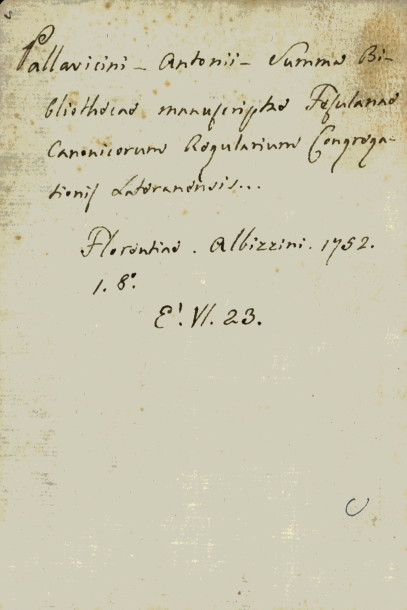 Pallavicini - Antonii - Summa Bi-
bliothecae manuscriptae Fesulanae
Canonicorum Regularium Congrega-
tionis Lateranensis...
Florentiae. Albizzini. 1752.
1. 8°.
E'. VI. 23.